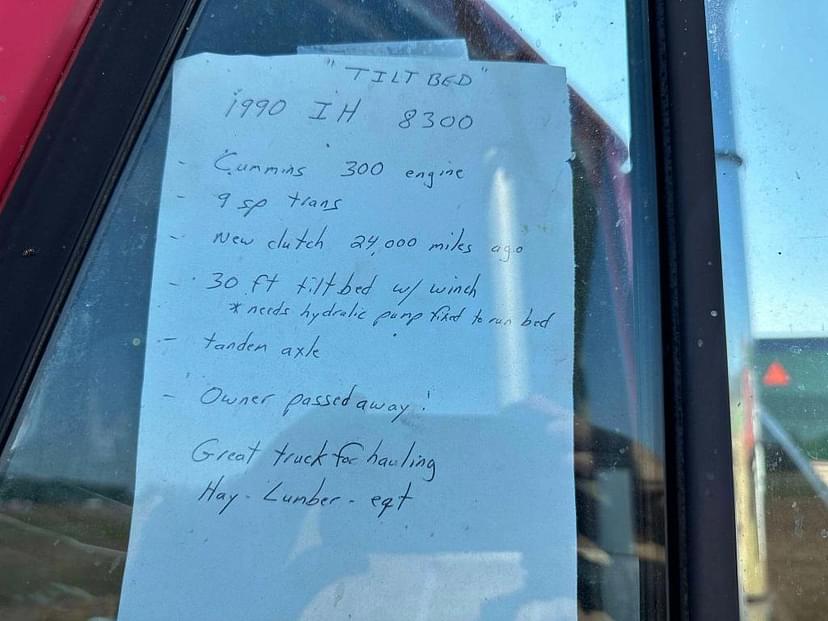 "TILT BED"
1990 IH 8300
- Cummins 300 engine
- 9 sp trans
- New clutch 24,000 miles ago
- 30 ft tilt bed w/ winch
* needs hydralic pump fixed to run bed
- tandem axle
- Owner passed away!
Great truck for hauling
Hay - Lumber - eqt